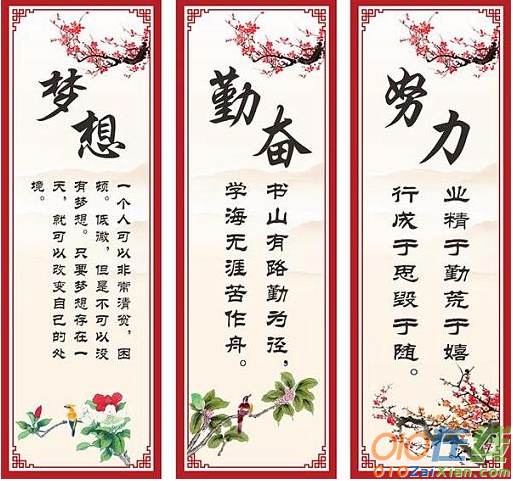 梦想
一个人可以非常清贫，困
顿。低微，但是不可以没
有梦想。只要梦想存在一
天，就可以改变自己的处
境。
勤奋
书山有路勤为径，
学海无涯苦作舟。
努力
业精于勤荒于嬉
行成于思毁于随。
010在线
010ZaiXian.com